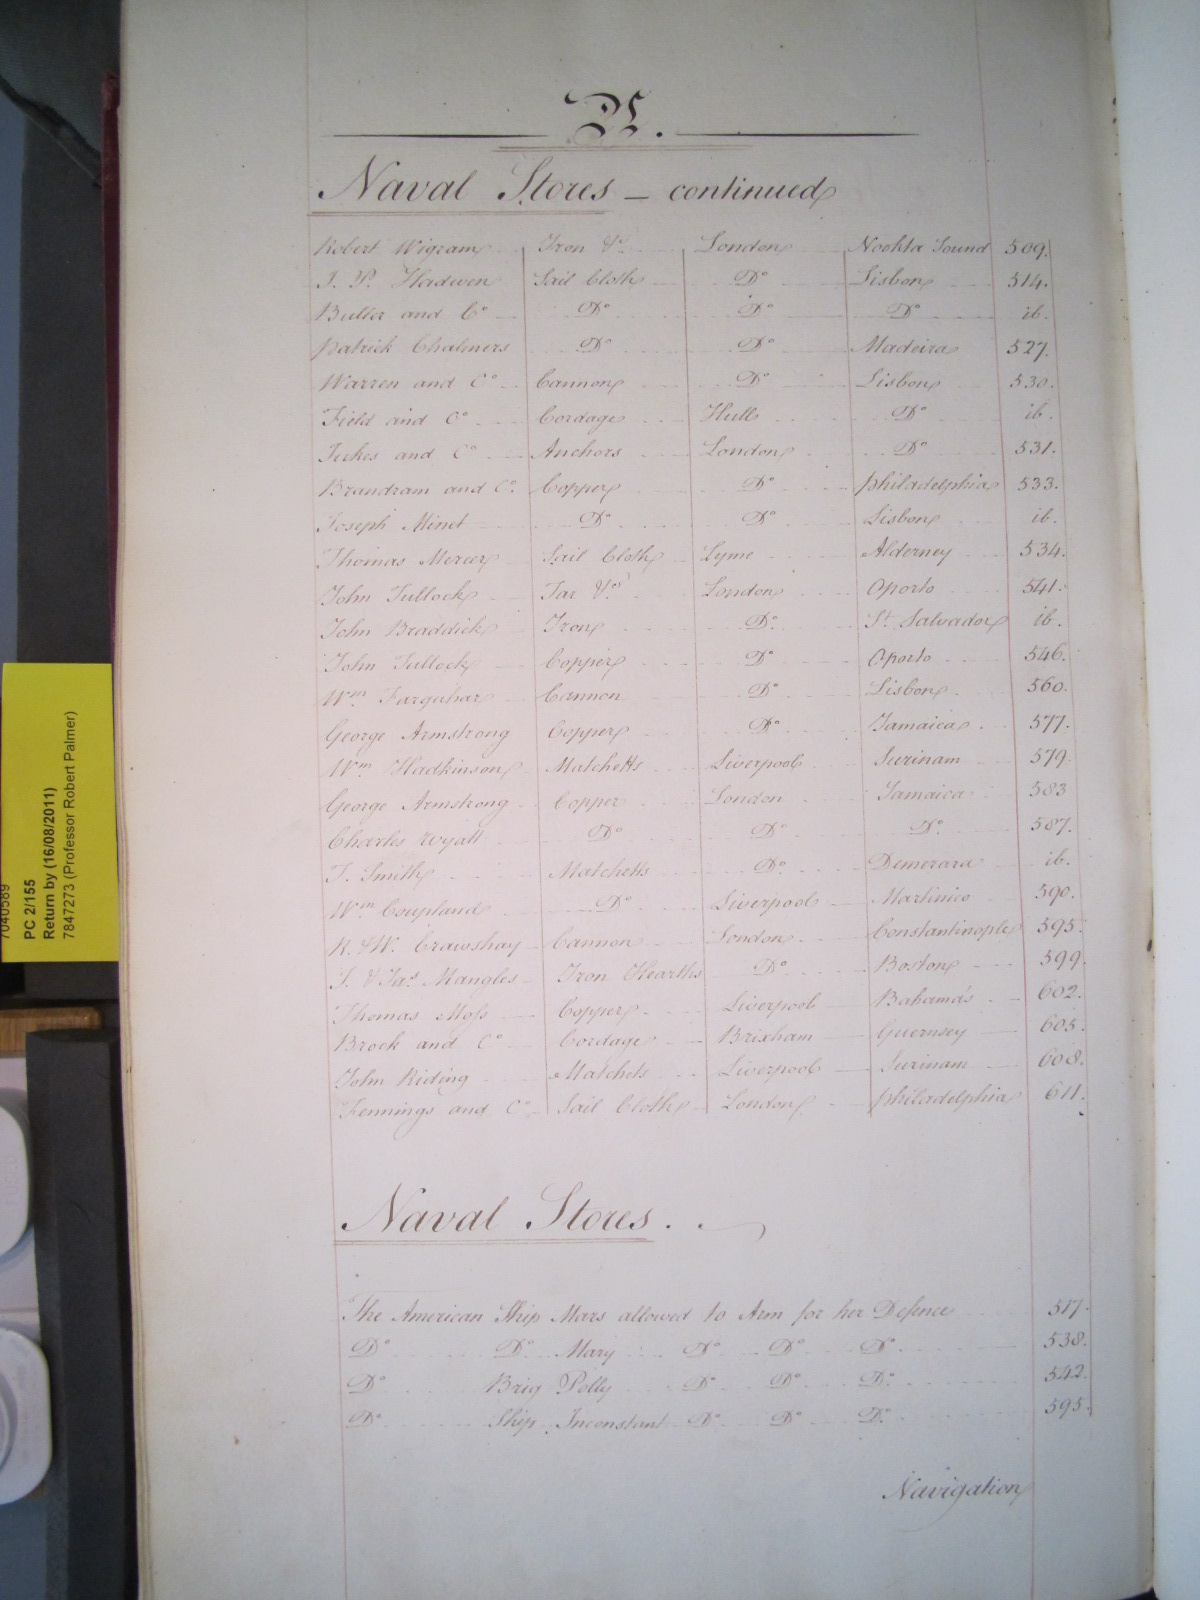 N.
Naval Stores – continued
Robert Wigram Iron &c. London Nootka Sound 509.
J. P. Hadwen Sail Cloth Do Lisbon 514.
Buller and Co Do Do Do ib.
Patrick Chalmers Do Do Madeira 527.
Warren and Co Cannon Do Lisbon 530.
Field and Co Cordage Hull Do ib.
Jukes and Co Anchors London Do 531.
Brandram and Co. Copper Do Philadelphia 533.
Joseph Minet Do Do Lisbon ib.
Thomas Mercer Sail Cloth Lyme Alderney 534.
John Tullock Tar &c London Oporto 541.
John Braddick Iron Do St Salvador ib.
John Tullock Copper Do Oporto 546.
Wm Farquhar Cannon Do Lisbon 560.
George Armstrong Copper Do Jamaica 577.
Wm Hadkinson Matchetts Liverpool Surinam 579.
George Armstrong Copper London Jamaica 583
Charles Wyatt Do Do Do 587.
T. Smith Matchetts Do Demerara ib.
Wm Coupland Do Liverpool Martinico 590.
R. & W. Crawshay Cannon London Constantinople 595.
J. & Jas Mangles Iron Hearths Do Boston 599.
Thomas Moss Copper Liverpool Bahama's 602.
Brock and Co Cordage Brixham Guernsey 605.
John Riding Matchets Liverpool Surinam 608.
Jennings and Co Sail Cloth London Philadelphia 611.
Naval Stores.
The American Ship Mars allowed to Arm for her Defence 517.
Do Do Mary Do Do Do 538.
Do Brig Polly Do Do Do 542.
Do Ship Inconstant Do Do Do 595.
Navigation
PC 2/155
Return by (16/08/2011)
7847273 (Professor Robert Palmer)